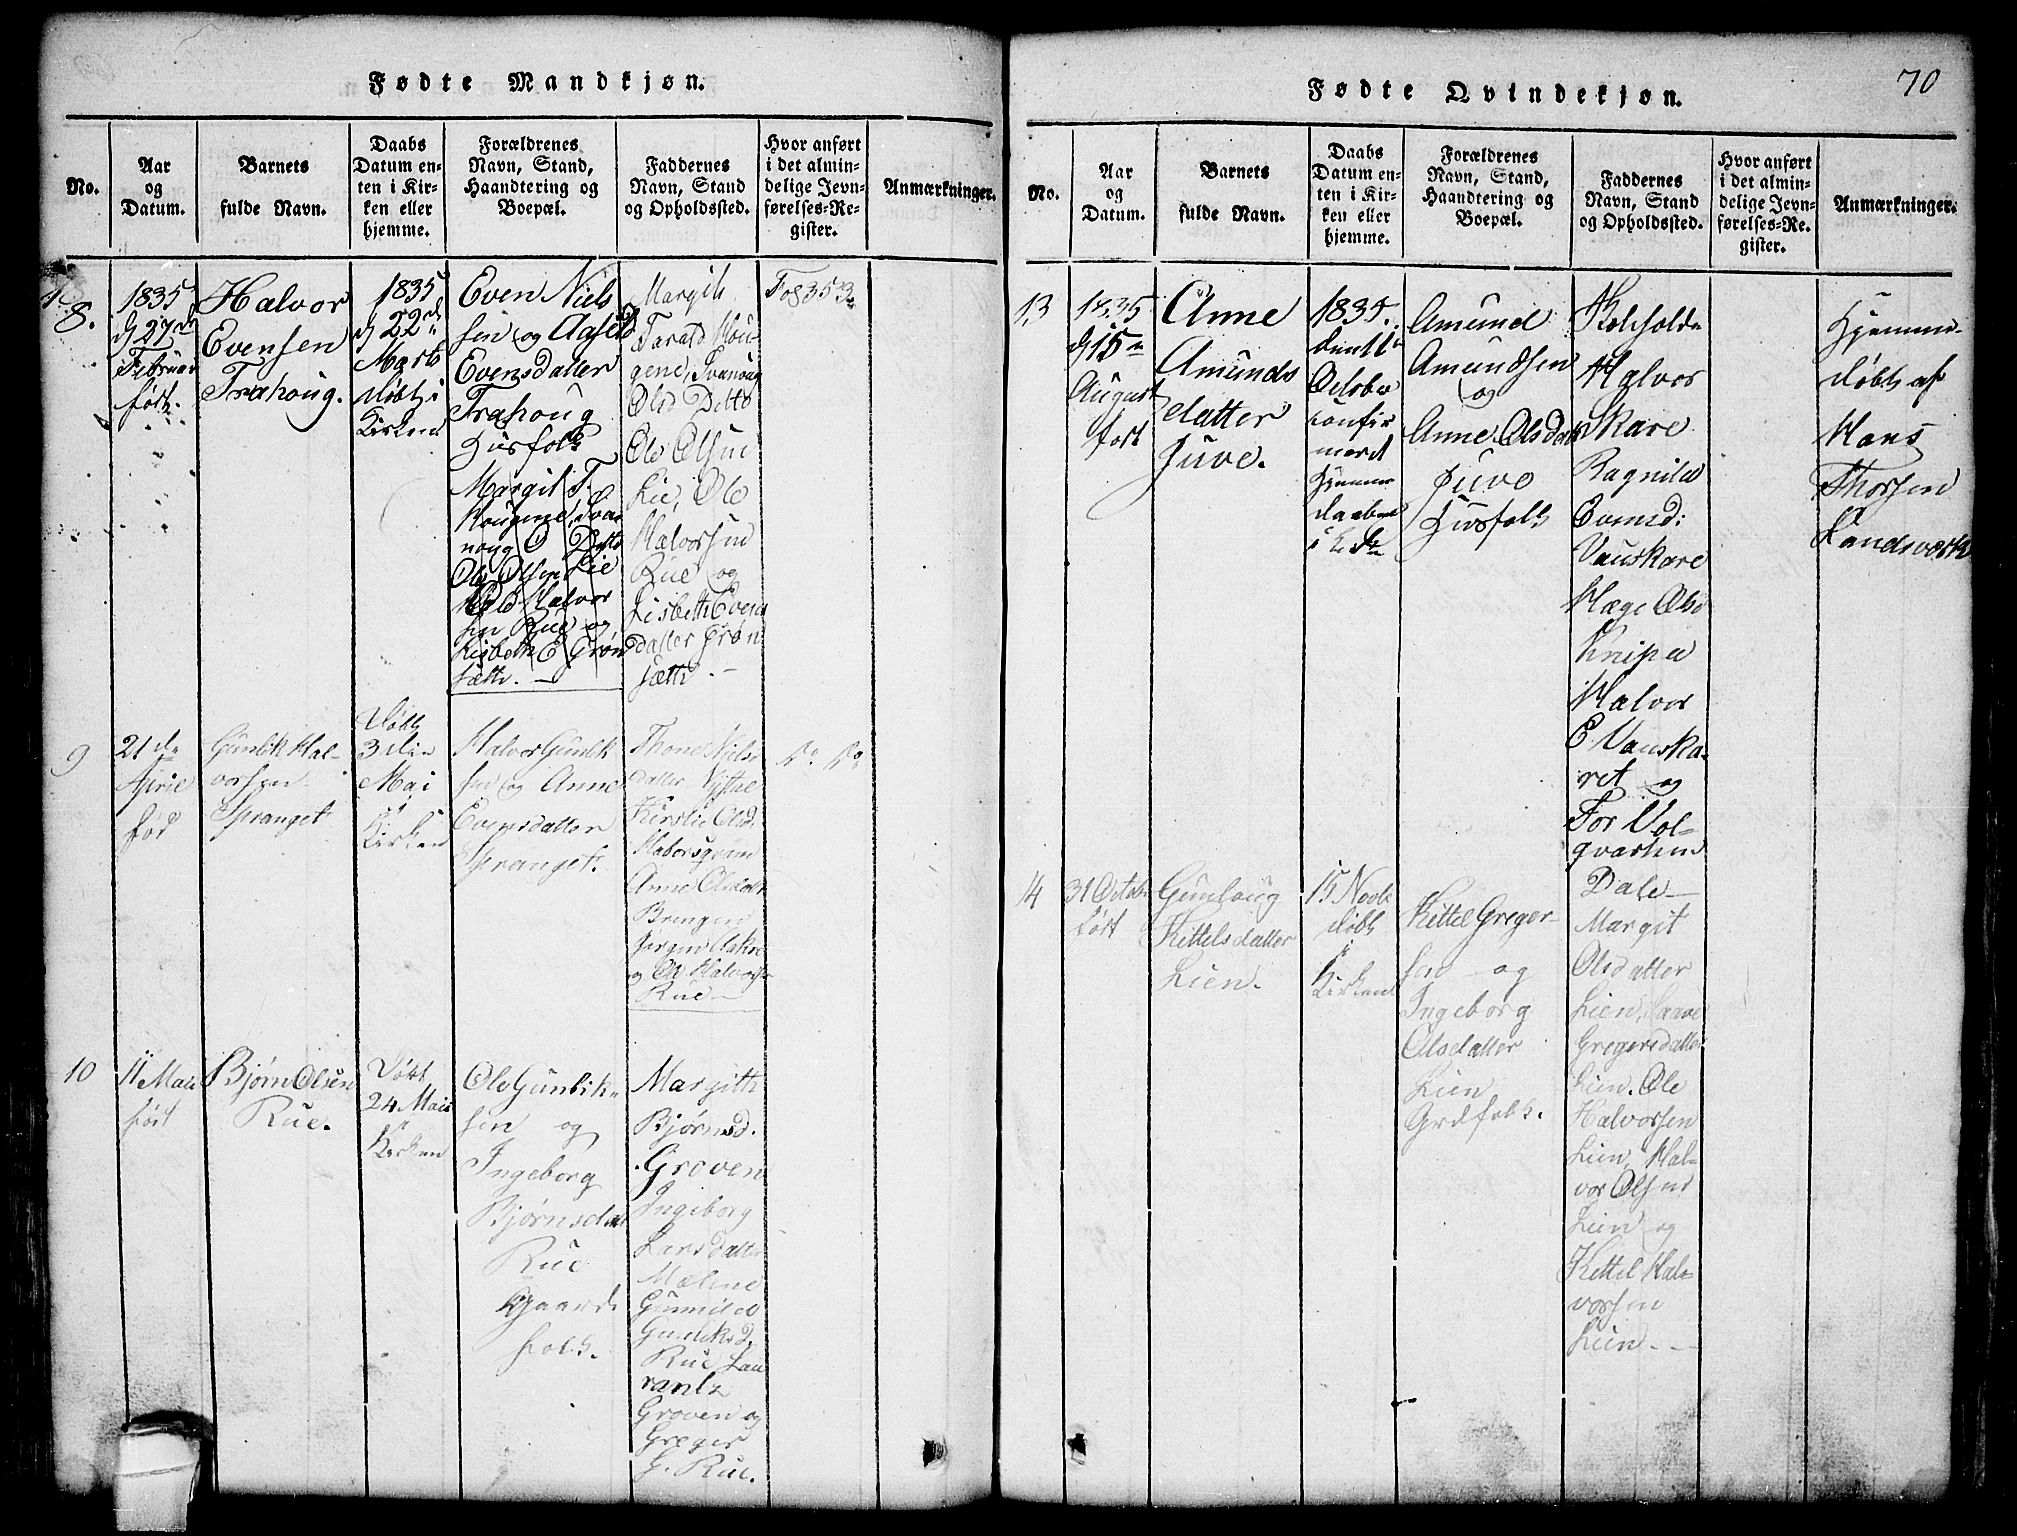 Fødte Mandkjøn.
No.
Aar
og
Datum.
Barnets
fulde Navn.
Daabs
Datum en-
ten i Kir-
ken eller
hjemme.
Forældrenes
Navn, Stand,
Haandtering og
Boepæl.
Faddernes
Navn, Stand
og Opholdssted.
Hvor anført
i det almin-
delige Jevn-
førelses-Re-
gister.
Anmærkninger.
8.
1835
d 27de
Februar
født.
Halvor
Evensen
Trahoug.
1835
d 22de
Marts
døbt i
Kirken
Even Niels
sen og Aaselid
Evensdatter
Trahoug
Husfolk
Margit T.
Hougene, Svar
noug O Ditto
Ole Olsen Lie
Halvor
sen Rue og
Lisbeth E Grøn
sætte. —
Margit
Tarald Hou-
gene, Svanoug
Olsd Ditto
Ole Olsen
Lie, Ole
Halvorsen
Rue og
Lisbeth Evens
datter Grøn
sætte. —
Fog 353
9
21de
April
fød
Gunlik Hal-
vorsen
Spranget
Døbt
3die
Mai
i
Kirken
Halvor Gunlik
sen og Anne
Evensdatter
Spranget.
Thone Niels
datter Nystal
Kirstie Olsd.
Haborsgrøn
Anne Olsdatr
Bringen
Jørgen Hakre
og Ole Halvors
Rue —
Do Do
10
11 Mai
født
Bjørn Olsen
Rue.
Døbt
24 Mai
i
Kirken
Ole Gunlik-
sen og
Ingeborg
Bjørnsdat
Rue
Gaard-
folk.
Margith
Bjørnsd.
Groven
Ingeborg
Larsdatter
Mælme
Gunnild
Gunliksd.
Rue, Lau
rantz
Groven og
Greger
G. Rue.
70
Fødte Qvindekjøn.
No.
Aar
og
Datum.
Barnets
fulde Navn.
Daabs
Datum en-
ten i Kir-
ken eller
hjemme.
Forældrenes
Navn, Stand,
Haandtering og
Boepæl.
Faddernes
Navn, Stand
og Opholdssted.
Hvor anført
i det almin-
delige Jevn-
førelses-Re-
gister.
Anmærkninger.
13
1835
d 15de
August
født
Anne
Amunds
datter
Juve.
1835.
den 11te
October
confir
meret
hjemme
daaben
i
Amund
Amundsen
og
Anne Olsdatr
Juve
Husfolk
Halvor
Skare
Ragnild
Evensd:
Vauskare
Hæge Olsd
Knipa
Halvor
E Vauska-
ret og
Tor Vol-
qvarsen
Dale —
Hjemme-
døbt af
Hans
Thorsen
Landsværk
14
31 Octobr
født
Gunloug
Kittelsdatter
Lien.
15 Novbr
døbt
i
Kirken
Kittel Greger-
sen og
Ingeborg
Olsdatter
Lien
Grdfolk.
Margit
Olsdatter
Lien,
Gregersdatter
Lien. Ole
Halvorsen
Lien, Hal-
vor Olsen
Lien og
Kittel Hal-
vorsen
Lien. —